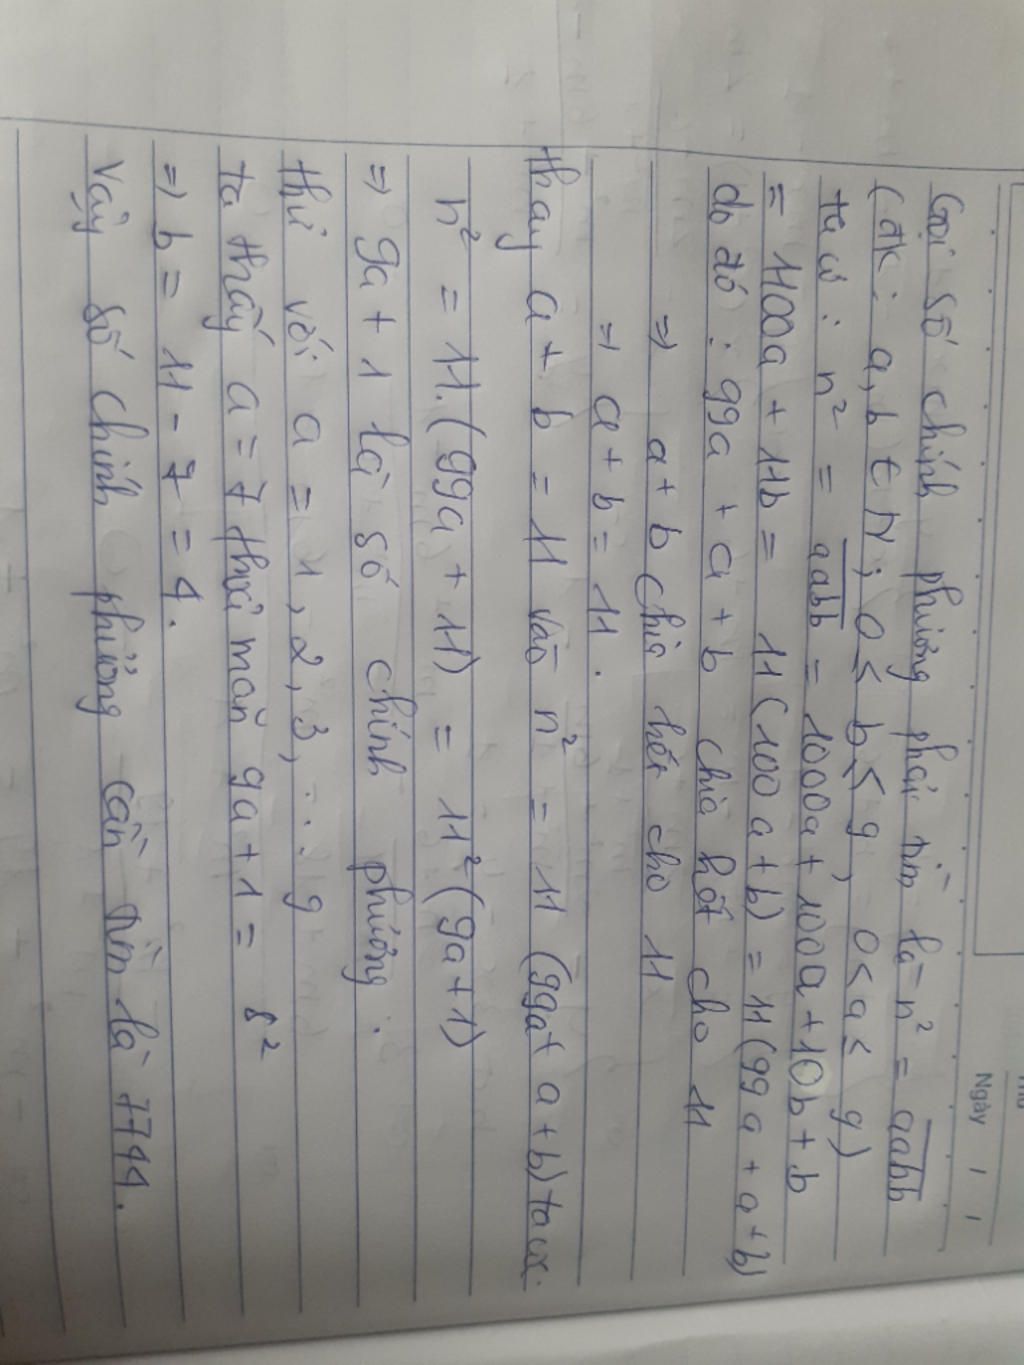 Ngày / /
Gọi số chính phương phải tìm là n² = aabb
(đk: a, b ∈ N; 0 ≤ b ≤ 9, 0 < a ≤ 9)
ta có: n² = aabb = 1000a + 100a + 10b + b
= 1100a + 11b = 11(100a + b) = 11(99a + a + b)
do đó: 99a + a + b chia hết cho 11
⇒ a + b chia hết cho 11
⇒ a + b = 11.
thay a + b = 11 vào n² = 11 (99a + a + b) ta có:
n² = 11.(99a + 11) = 11²(9a + 1)
⇒ 9a + 1 là số chính phương.
thử với a = 1, 2, 3, ... 9
ta thấy a = 7 thoả mãn 9a + 1 = 8²
⇒ b = 11 - 7 = 4.
Vậy số chính phương cần tìm là 7744.